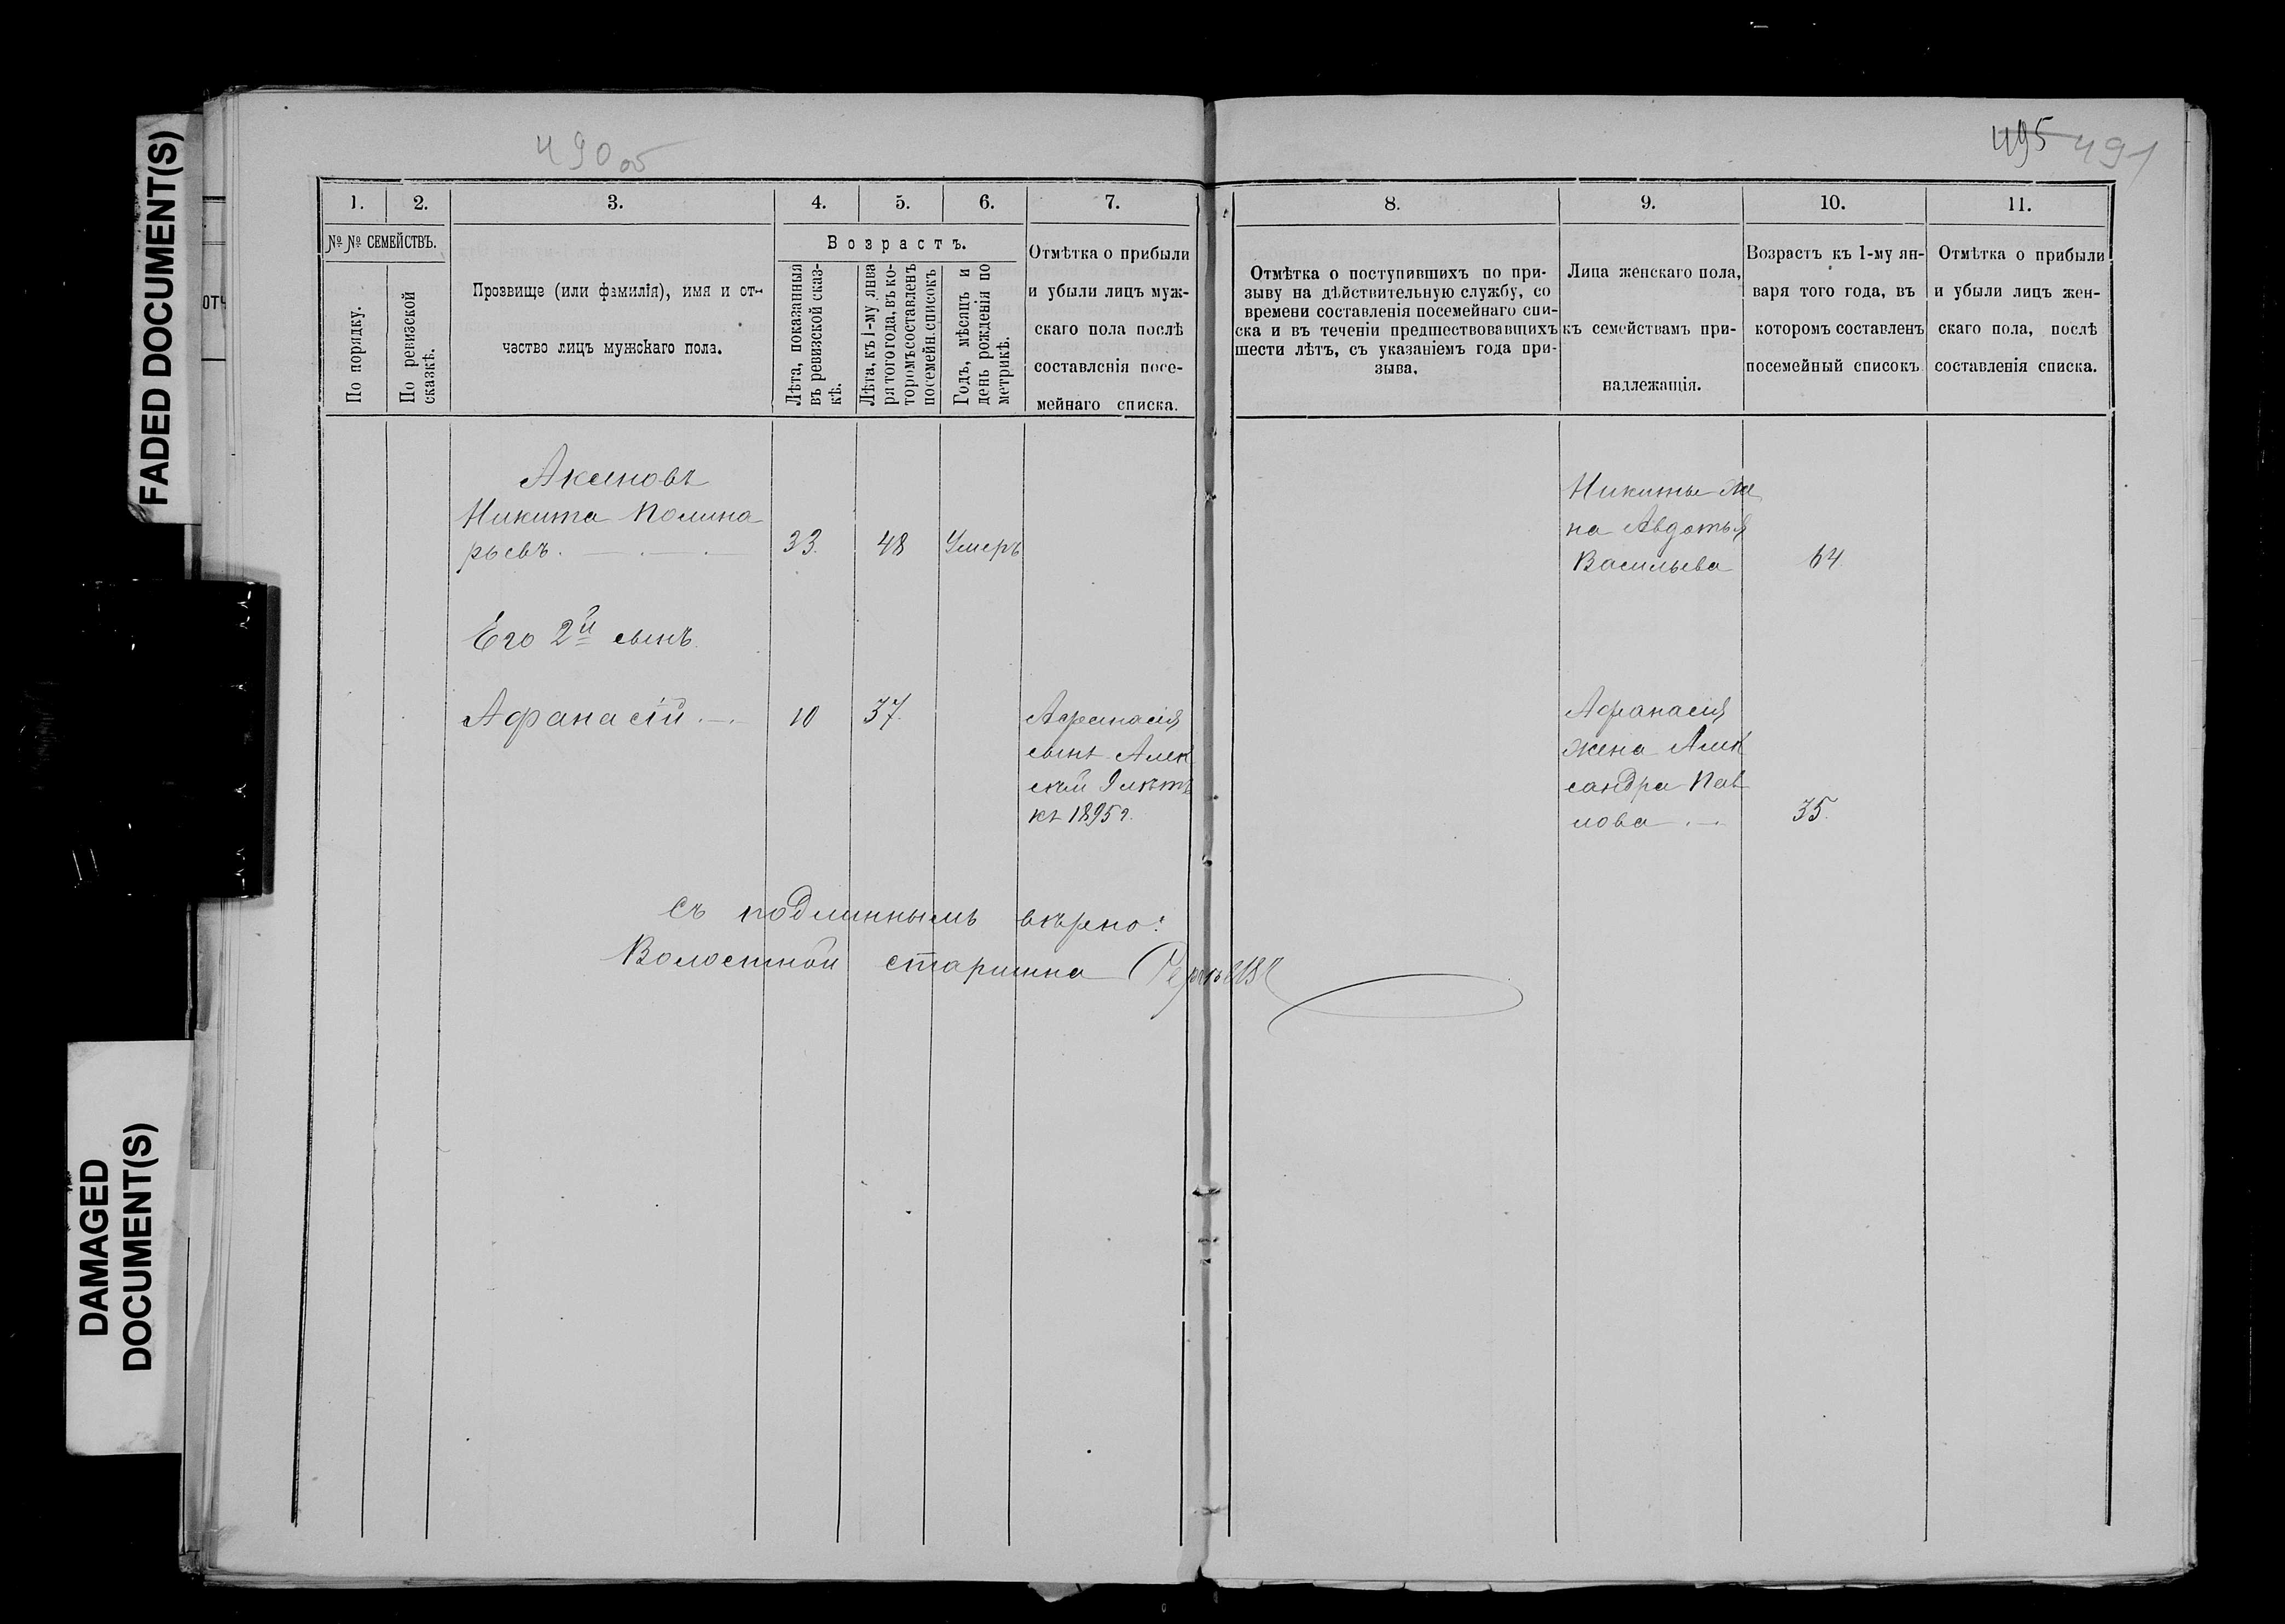 FADED DOCUMENT(S)
DAMAGED
DOCUMENT(S)
490 об
495 491
1.
2.
3.
4.
5.
6.
7.
№ № СЕМЕЙСТВЪ.
По порядку.
По ревизской
сказкѣ.
Прозвище (или фамилія), имя и от-
чество лицъ мужскаго пола.
Возрастъ.
Лѣта, показанныя
въ ревизской сказ-
кѣ.
Лѣта, къ 1-му янва
ря того года, въ ко-
торомъ составленъ
посемейн. списокъ
Годъ, мѣсяцъ и
день рожденія по
метрикѣ.
Отмѣтка о прибыли
и убыли лицъ муж-
скаго пола послѣ
составленія посе-
мейнаго списка.
8.
9.
10.
11.
Отмѣтка о поступившихъ по при-
зыву на дѣйствительную службу, со
времени составленія посемейнаго спи-
ска и въ теченіи предшествовавшихъ
шести лѣтъ, съ указаніемъ года при-
зыва.
Лица женскаго пола,
къ семействамъ при-
надлежащія.
Возрастъ къ 1-му ян-
варя того года, въ
которомъ составленъ
посемейный списокъ
Отмѣтка о прибыли
и убыли лицъ жен-
скаго пола, послѣ
составленія списка.
Никита Полина
рьевъ. 33. 48 Умеръ
Его 2й сынъ.
Афанасій 10 37.
Афанасія
сынъ Алек
сѣй 9 лѣтъ
къ 1895 г.
Никиты же
на Авдотья
Васильева 64.
Афанасія
жена Алек
сандра Пав
лова 35.
Съ подлиннымъ вѣрно:
Волостной старшина